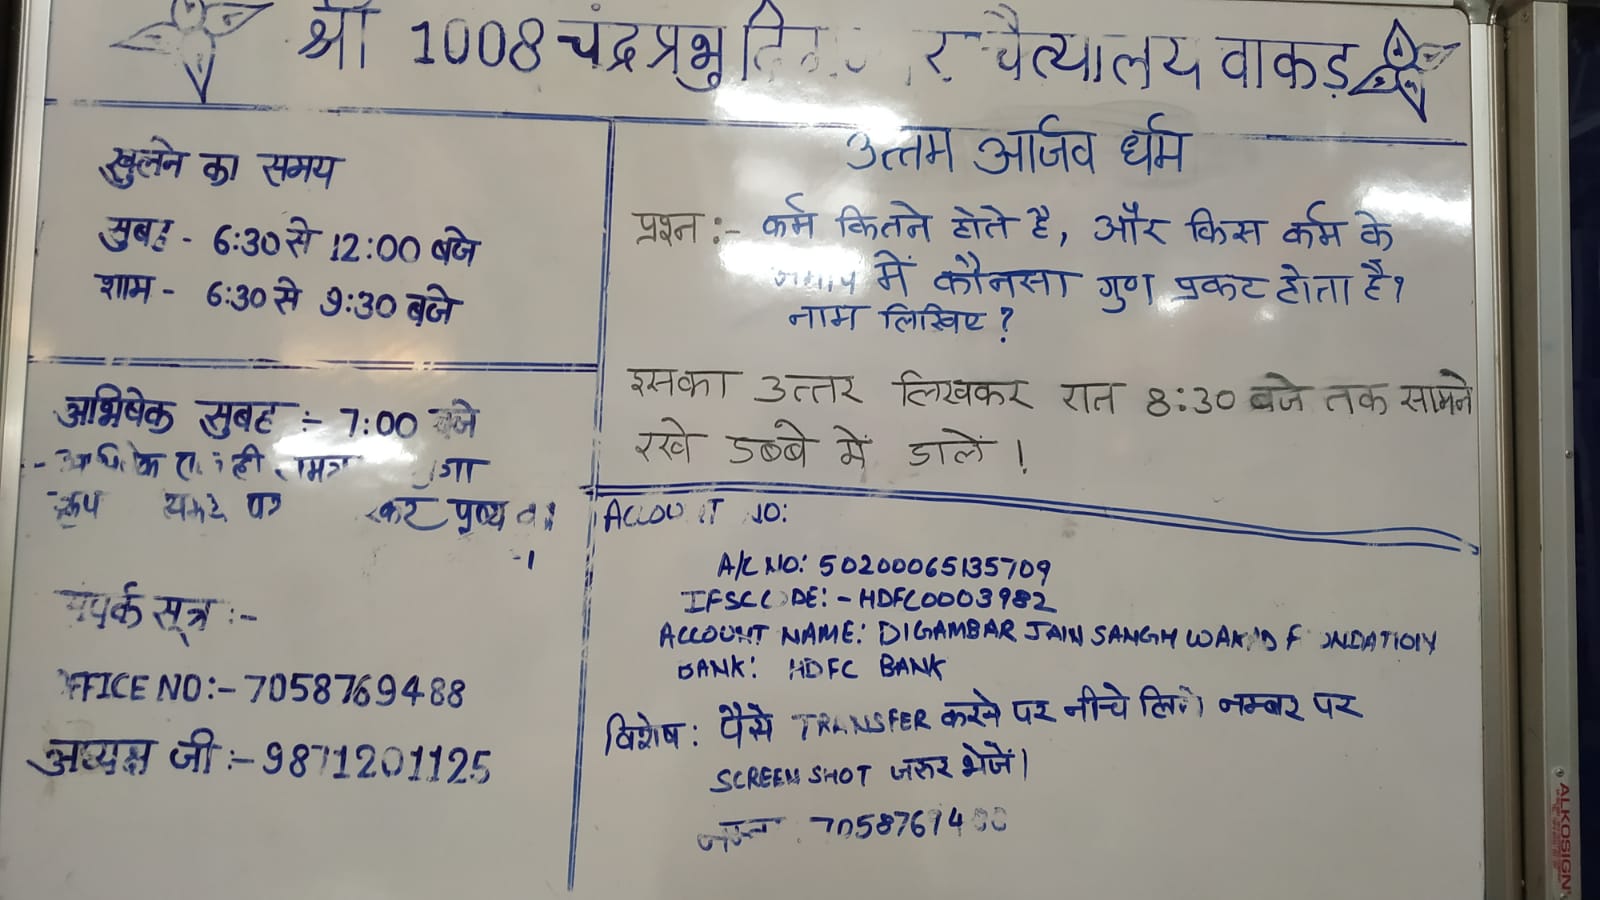 श्री 1008 चंद्रप्रभु चैत्यालय वाकड़
खुलने का समय
सुबह - 6:30 से 12:00 बजे
शाम - 6:30 से 9:30 बजे
अभिषेक सुबह :- 7:00 बजे
पर पुण्य
संपर्क सूत्र :-
OFFICE NO:- 7058769488
अध्यक्ष जी :- 9871201125
उत्तम आर्जव धर्म
प्रश्न :- कर्म कितने होते है, और किस कर्म के
में कौनसा गुण प्रकट होता है?
नाम लिखिए ?
इसका उत्तर लिखकर रात 8:30 बजे तक सामने
रखे डब्बे में डालें ।
ACCOUNT NO:
A/C NO: 50200065135709
IFSC CODE: - HDFC0003982
ACCOUNT NAME: DIGAMBAR JAIN SANGH WAKAD FOUNDATION
BANK: HDFC BANK
विशेष : पैसे TRANSFER करने पर नीचे लिखे नम्बर पर
SCREEN SHOT जरुर भेजें।
70587694